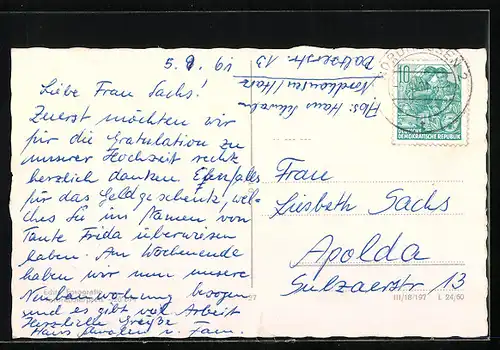 5.9.61
Liebe Frau Sachs!
Zuerst möchten wir
für die Gratulation zu
unserer Hochzeit recht
herzlich danken. Ebenfalls
für das Geldgeschenk, wel-
ches Sie im Namen von
Tante Frida überwiesen
haben. Am Wochenende
haben wir nun unsere
Neubauwohnung bezogen
und es gibt viel Arbeit
Herzliche Grüße
Hans u. Fam.
Abs: Hans
Nordhausen/Harz
str. 13
10
DEUTSCHE
DEMOKRATISCHE REPUBLIK
NORDHAUSEN 2
Frau
Liesbeth Sachs
Apolda
Sulzaerstr 13
III/18/197 L 24/60